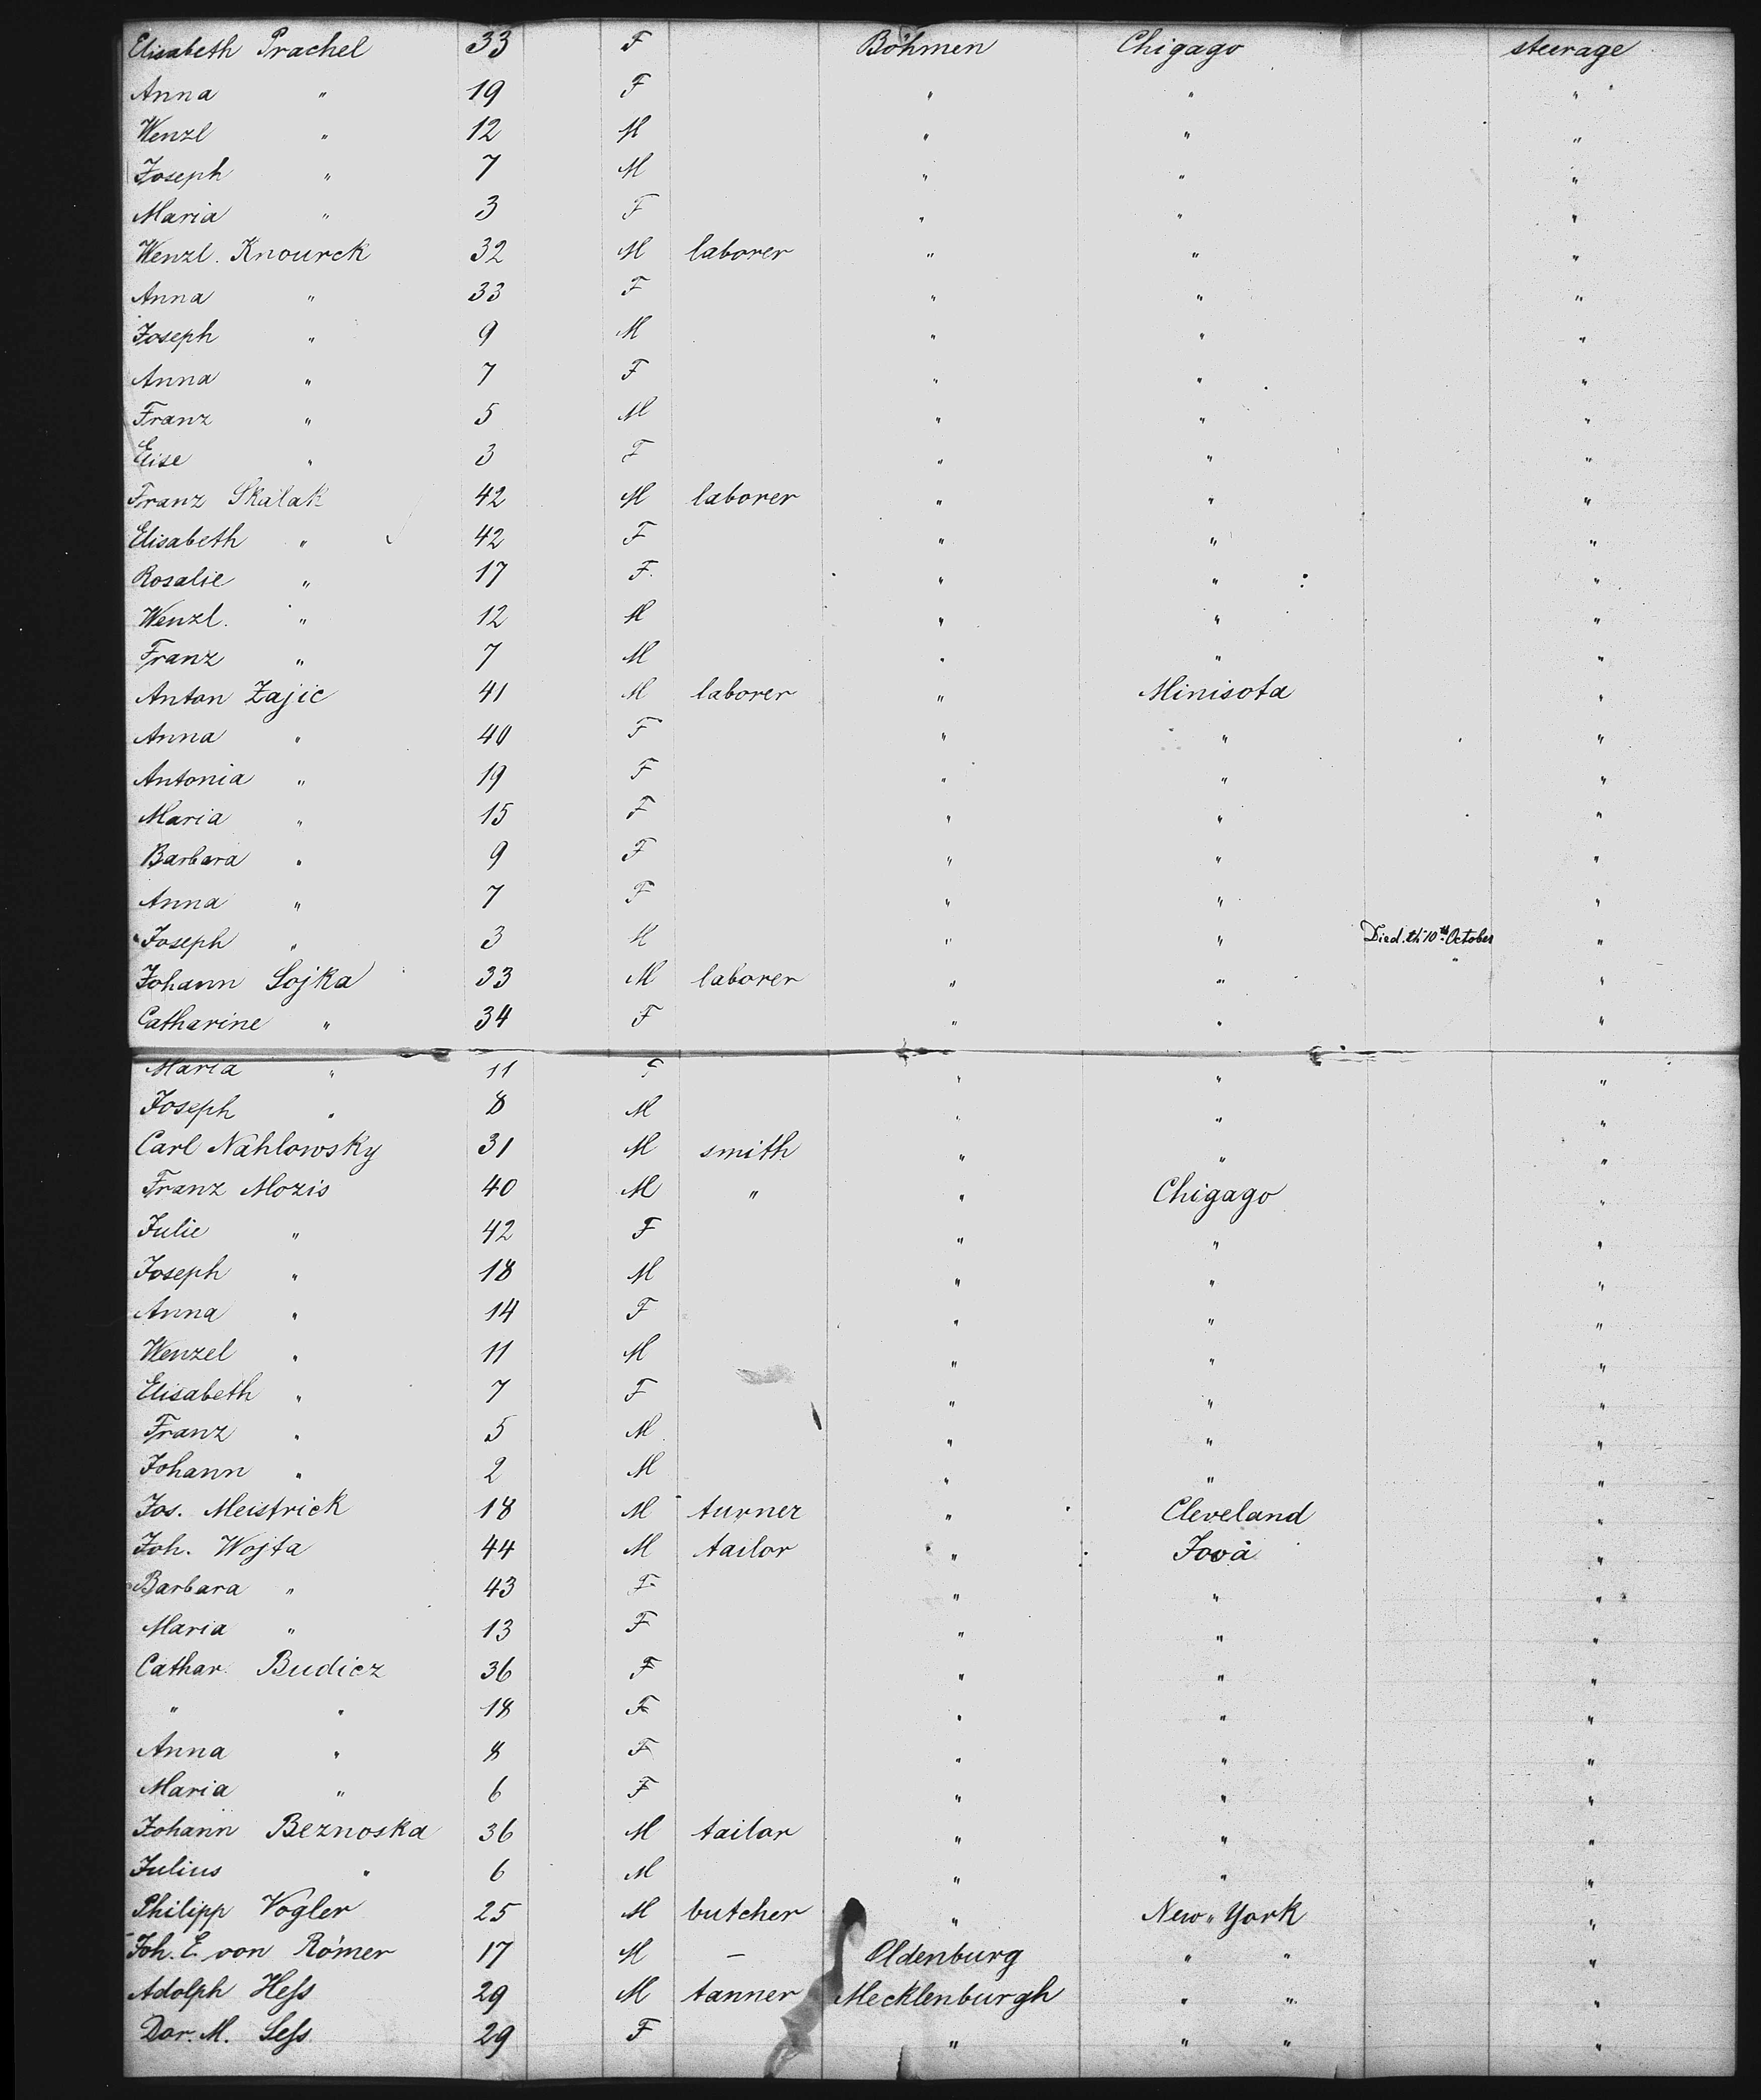 Elisabeth Prachel 33 F Böhmen Chigago steerage
Anna " 19 F " " "
Wenzl " 12 M " " "
Joseph " 7 M " " "
Maria " 3 F " " "
Wenzl. Knourek 32 M laborer " " "
Anna " 33 F " " "
Joseph " 9 M " " "
Anna " 7 F " " "
Franz " 5 M " " "
Elise " 3 F " " "
Franz Skalak 42 M laborer " " "
Elisabeth " 42 F " " "
Rosalie " 17 F. " " "
Wenzl. " 12 M " " "
Franz " 7 M " " "
Anton Zajic 41 M laborer " Minisota "
Anna " 40 F " " "
Antonia " 19 F " " "
Maria " 15 F " " "
Barbara " 9 F " " "
Anna " 7 F " " "
Joseph " 3 M " " Died th 10th October "
Johann Sojka 33 M laborer " " "
Catharine " 34 F " " "
Maria " 11 F " " "
Joseph " 8 M " " "
Carl Nahlowsky 31 M smith " " "
Franz Mozis 40 M " " Chigago "
Julie " 42 F " " "
Joseph " 18 M " " "
Anna " 14 F " " "
Wenzel " 11 M " " "
Elisabeth " 7 F " " "
Franz " 5 M " " "
Johann " 2 M " " "
Jos. Meistrick 18 M turner " Cleveland "
Joh. Wojta 44 M tailor " Iova "
Barbara " 43 F " " "
Maria " 13 F " " "
Cathar. Budicz 36 F " " "
" " 18 F " " "
Anna " 8 F " " "
Maria " 6 F " " "
Johann Beznoska 36 M tailor " " "
Julius " 6 M " " "
Philipp Vogler 25 M butcher " New-York "
Joh. E. von Römer 17 M – Oldenburg " " "
Adolph Heſs 29 M tanner Mecklenburgh " " "
Dor. M. Seſs 29 F " " " "